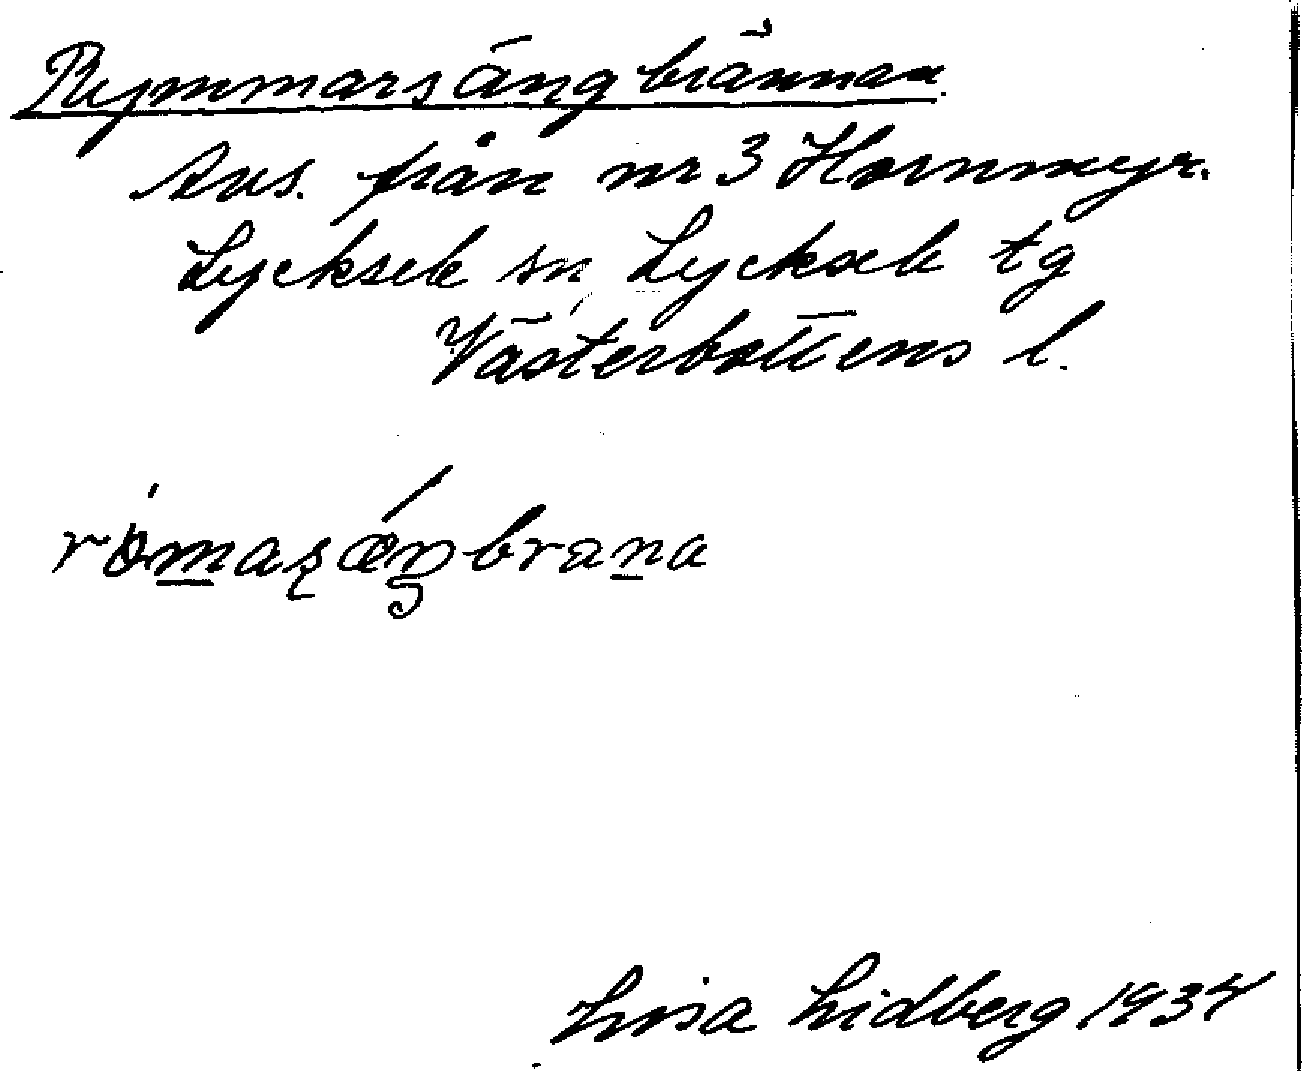 Rymmarsängbrännan.
Avs. från nr 3 Hornmyr.
Lycksele sn, Lycksele tg
Västerbottens l.
rómaʂǽŋbrana
Lisa Lidberg 1934